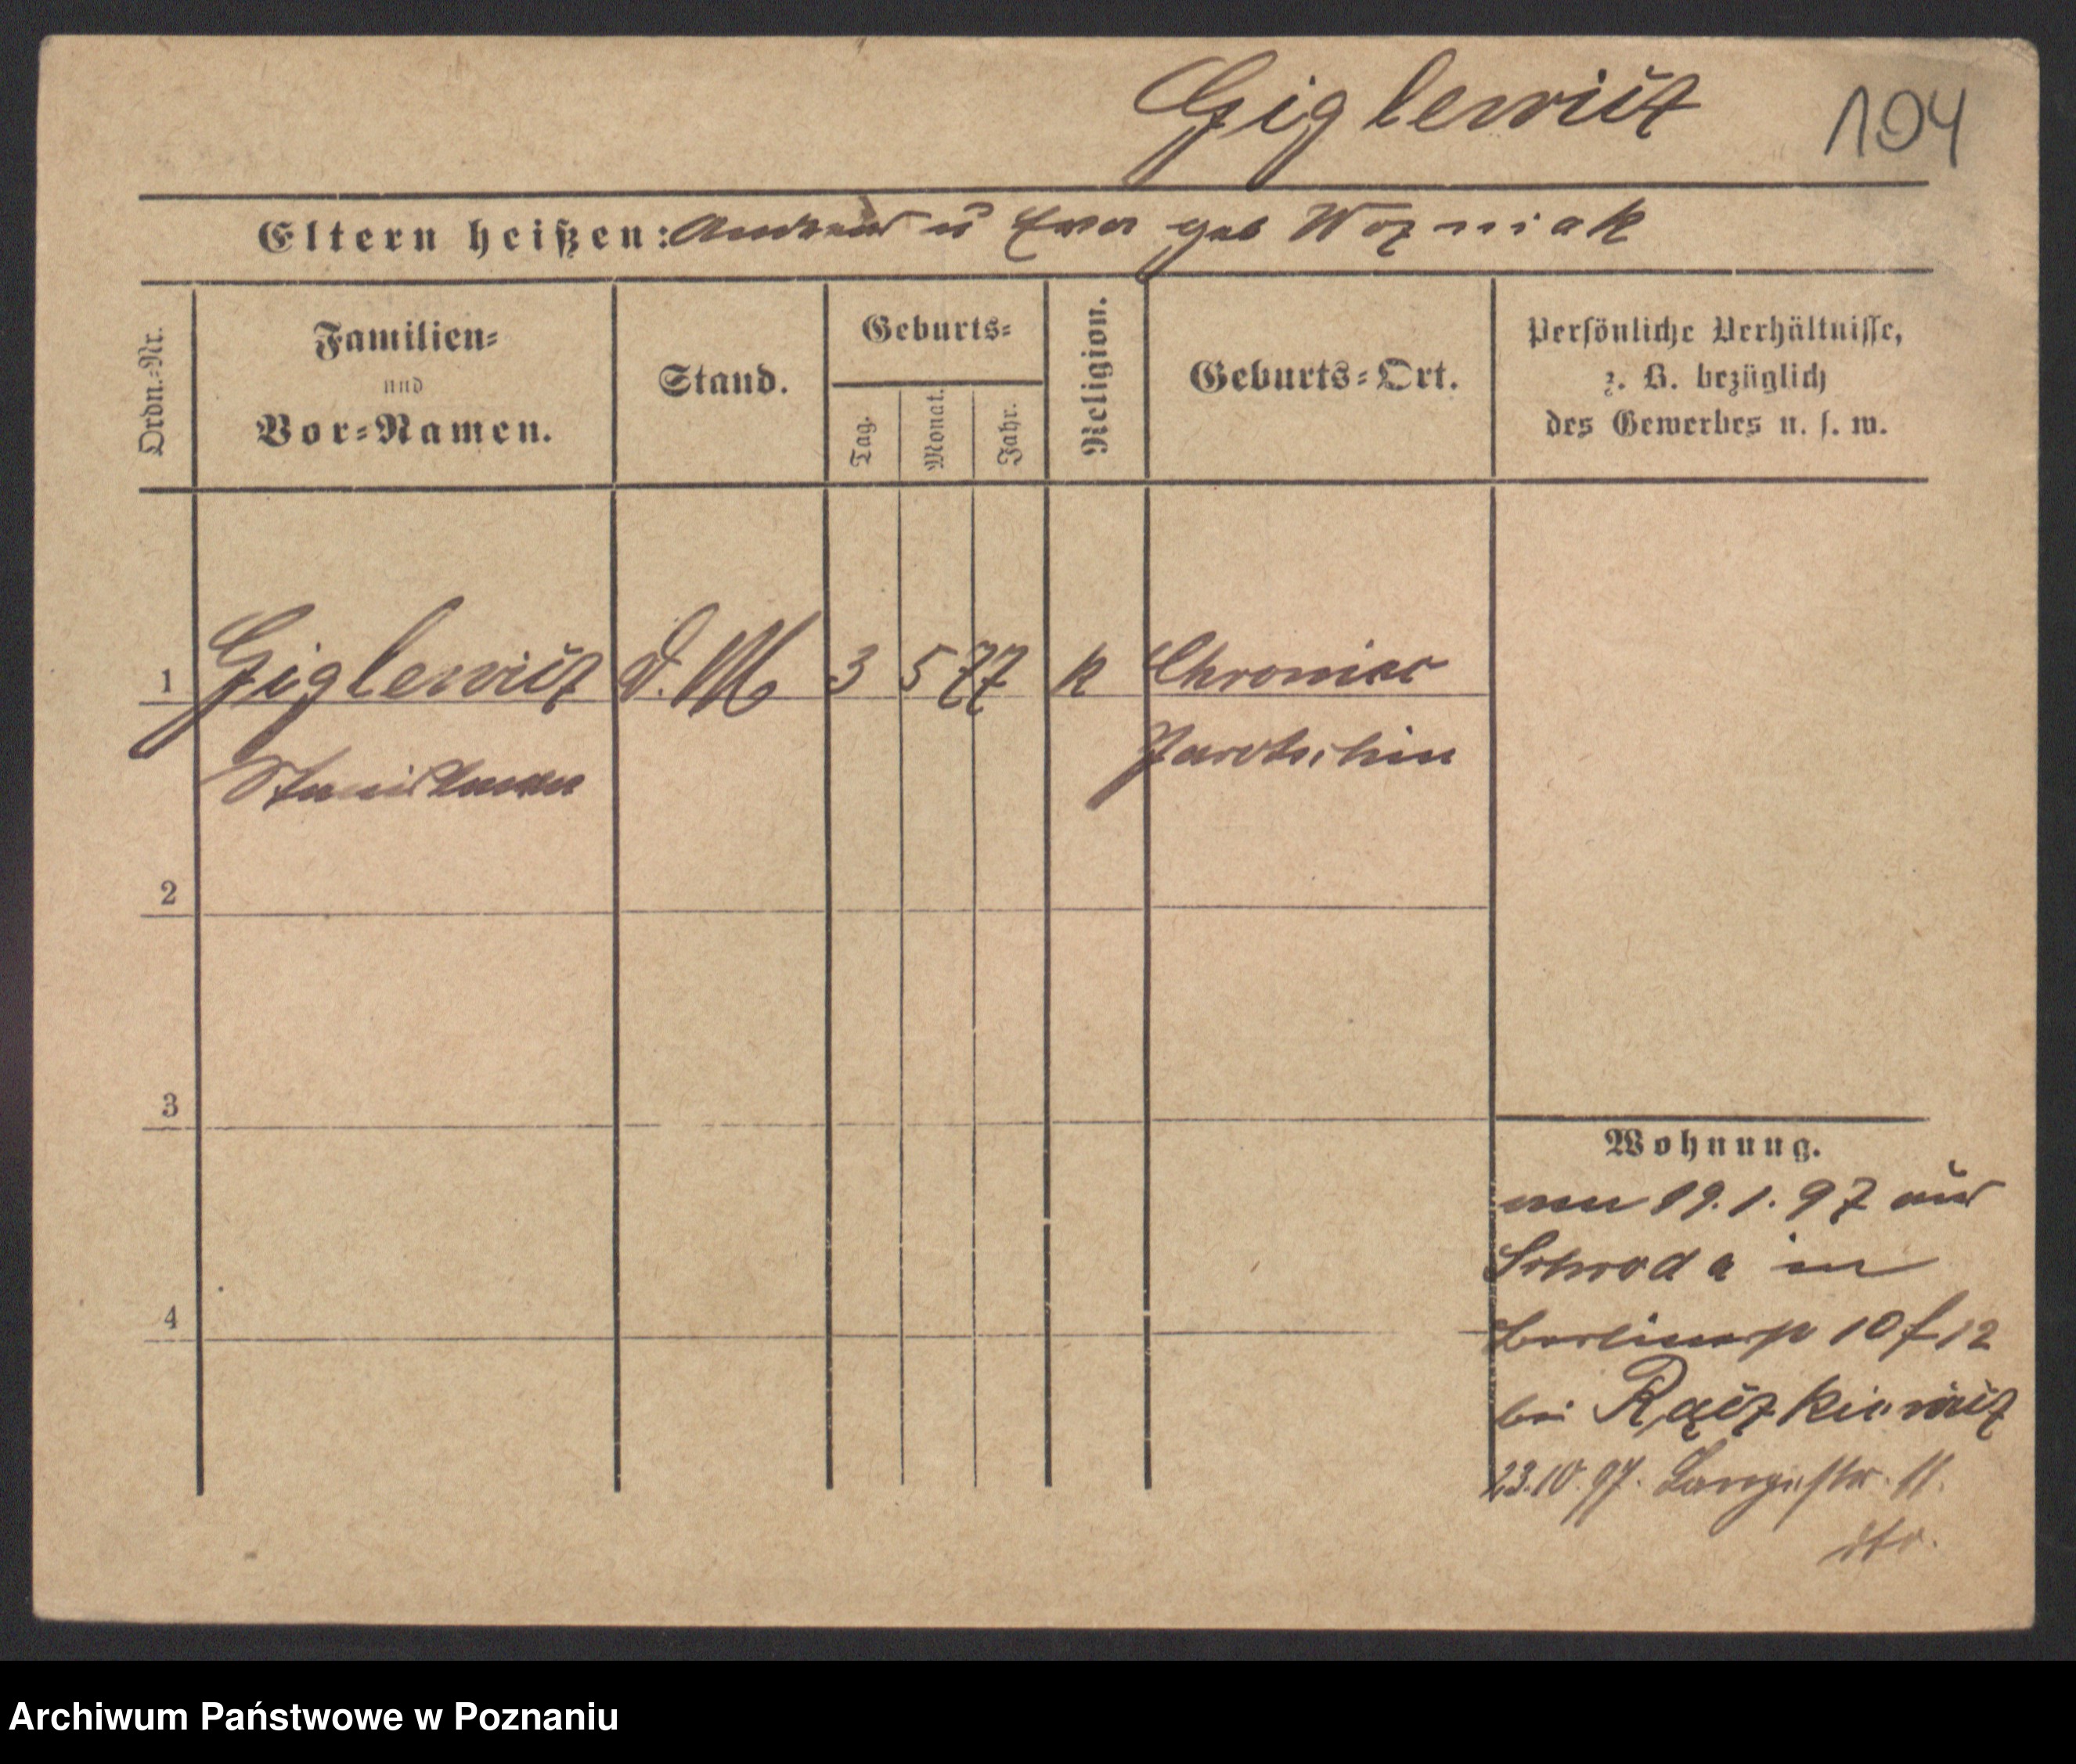 Giglewicz
104
Eltern heißen: Andreas u Eva geb Wozniak
Ordn.=Nr.
Familien=
und
Vor=Namen.
Stand.
Geburts=
Tag.
Monat.
Jahr.
Religion.
Geburts=Ort.
Persönliche Verhältnisse,
z. B. bezüglich
des Gewerbes u. s. w.
1 Giglewicz d. M 3 5 77 k Chromiec
Jarotschin
2
3
4
Wohnung.
19.1.97 aus
Schroda in
10 f 12
bei Raczkiewicz
23.10.97. Langestr. 11.
Archiwum Państwowe w Poznaniu